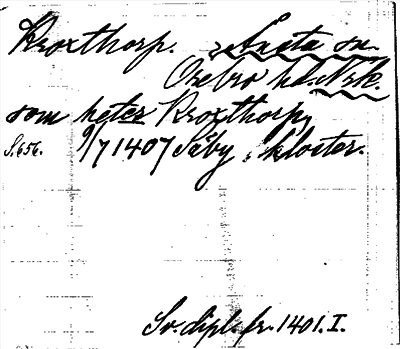 Kroxthorp. Axsta sn.
Örebro hd. Nrk.
som heter Kroxthorp,
S. 656. 9/7 1407 Säby, kloster.
Sv. dipl. fr. 1401. I.